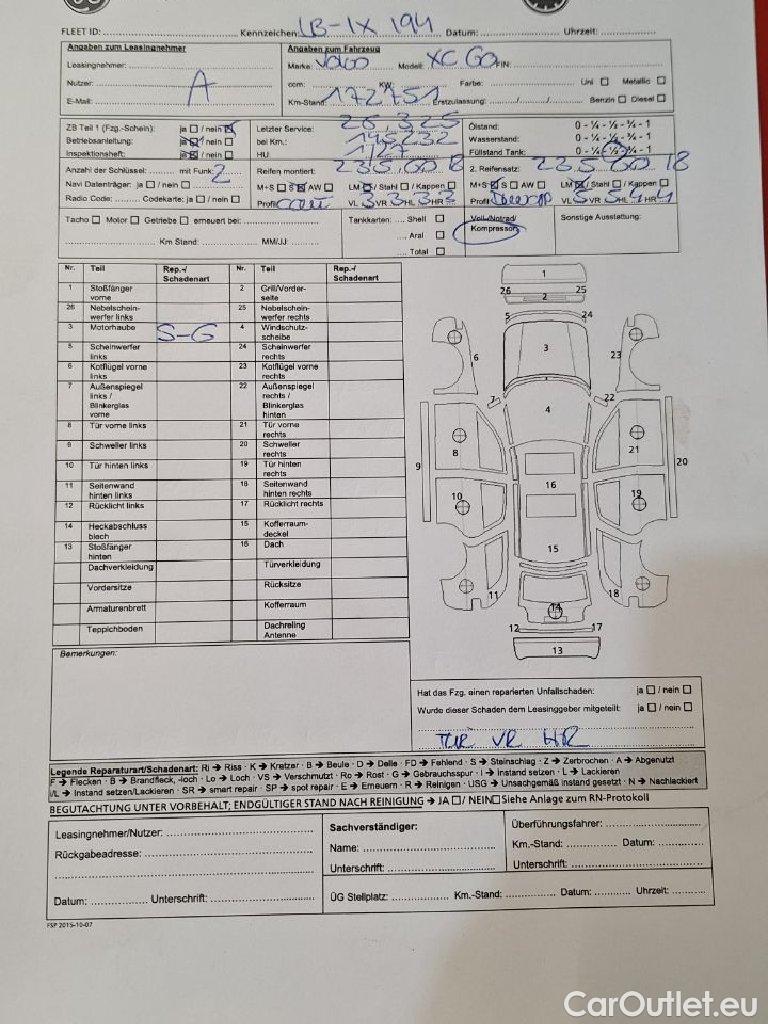 FLEET ID: Kennzeichen: LB-IX 194 Datum: Uhrzeit:
Angaben zum Leasingnehmer Angaben zum Fahrzeug
Leasingnehmer: Marke: Volvo Modell: XC 60 FIN:
Nutzer: A ccm: KW: Farbe: Uni Metallic
E-Mail: Km-Stand: 172751 Erstzulassung: Benzin Diesel
ZB Teil 1 (Fzg.-Schein): ja / nein Letzter Service: Ölstand: 0 - ¼ - ½ - ¾ - 1
Betriebsanleitung: ja / nein bei Km.: Wasserstand: 0 - ¼ - ½ - ¾ - 1
Inspektionsheft: ja / nein HU: 1/27 Füllstand Tank: 0 - ¼ - ½ - ¾ - 1
Anzahl der Schlüssel: mit Funk: 2 Reifen montiert: 235.60 18 2. Reifensatz: 235 60 18
Navi Datenträger: ja / nein M+S S AW LM / Stahl / Kappen M+S S AW LM / Stahl / Kappen
Radio Code: Codekarte: ja / nein Profil VL 3 VR 3 HL 3 HR 3 Profil VL 5 VR 5 HL 4 HR 4
Tacho Motor Getriebe erneuert bei: Tankkarten: Shell Voll-/Notrad/ Sonstige Ausstattung:
Aral Kompressor
Km Stand: MM/JJ: Total
Nr. Teil Rep.-/ Schadenart Nr. Teil Rep.-/ Schadenart
1 Stoßfänger vorne 2 Grill/Vorderseite
26 Nebelscheinwerfer links 25 Nebelscheinwerfer rechts
3 Motorhaube S-G 4 Windschutzscheibe
5 Scheinwerfer links 24 Scheinwerfer rechts
6 Kotflügel vorne links 23 Kotflügel vorne rechts
7 Außenspiegel links / Blinkerglas vorne 22 Außenspiegel rechts / Blinkerglas hinten
8 Tür vorne links 21 Tür vorne rechts
9 Schweller links 20 Schweller rechts
10 Tür hinten links 19 Tür hinten rechts
11 Seitenwand hinten links 18 Seitenwand hinten rechts
12 Rücklicht links 17 Rücklicht rechts
14 Heckabschluss blech 15 Kofferraumdeckel
13 Stoßfänger hinten 16 Dach
Dachverkleidung Türverkleidung
Vordersitze Rücksitze
Armaturenbrett Kofferraum
Teppichboden Dachreling Antenne
1
26 25
2
5 24
6 3 23
7 22
4
8 21
9 20
16
10 19
15
11 14 18
12 17
13
Bemerkungen:
Hat das Fzg. einen reparierten Unfallschaden: ja / nein
Wurde dieser Schaden dem Leasinggeber mitgeteilt: ja / nein
TÜR VR HR
Legende Reparaturart/Schadenart: Ri → Riss · K → Kratzer · B → Beule · D → Delle · FD → Fehlend · S → Steinschlag · Z → Zerbrochen · A → Abgenutzt
F → Flecken · B → Brandfleck, -loch · Lo → Loch · VS → Verschmutzt · Ro → Rost · G → Gebrauchsspur · I → Instand setzen · L → Lackieren
I/L → Instand setzen/Lackieren · SR → smart repair · SP → spot repair · E → Erneuern · R → Reinigen · USG → Unsachgemäß instand gesetzt · N → Nachlackiert
BEGUTACHTUNG UNTER VORBEHALT; ENDGÜLTIGER STAND NACH REINIGUNG → JA / NEIN Siehe Anlage zum RN-Protokoll
Leasingnehmer/Nutzer: Sachverständiger: Überführungsfahrer:
Rückgabeadresse: Name: Km.-Stand: Datum:
Unterschrift: Unterschrift:
Datum: Unterschrift: ÜG Stellplatz: Km.-Stand: Datum: Uhrzeit:
FSP 2015-10-07
CarOutlet.eu